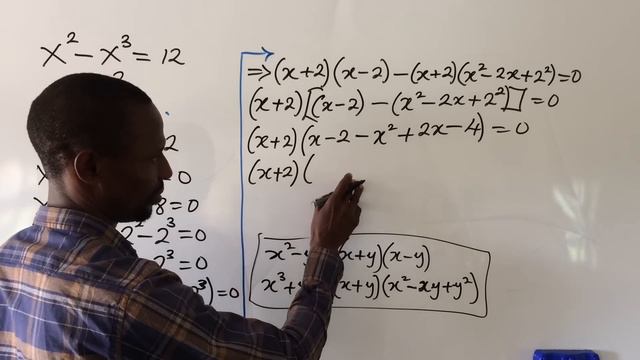 x² - x³ = 12
2
2
x 0
8 = 0
2² - 2³ = 0
2³ = 0
³) = 0
⇒ (x+2)(x-2) - (x+2)(x²-2x+2²) = 0
(x+2)[(x-2) - (x²-2x+2²)] = 0
(x+2)(x-2-x²+2x-4) = 0
(x+2)(
x² - x+y)(x-y)
x³+y x+y)(x²-xy+y²)